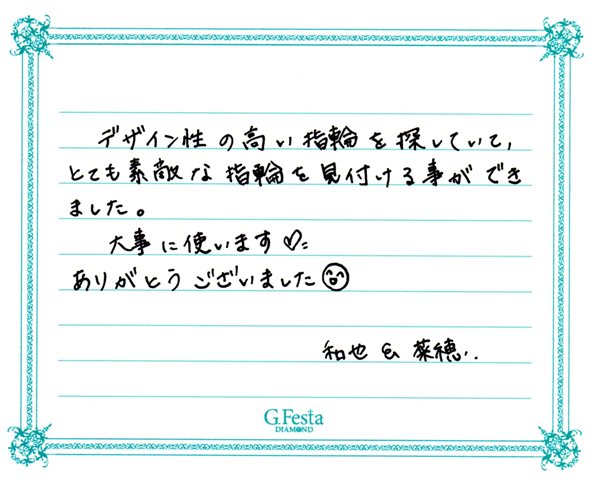 デザイン性の高い指輪を探していて、
とても素敵な指輪を見付ける事ができ
ました。
大事に使います♡
ありがとうございました
和也 & 菜穂
G.Festa
DIAMOND